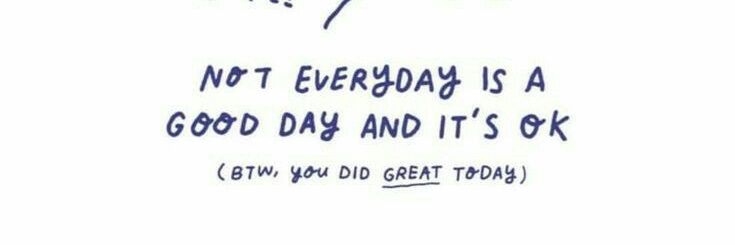 NOT EVERYDAY IS A
GOOD DAY AND IT'S OK
(BTW, you DID GREAT TODAY)